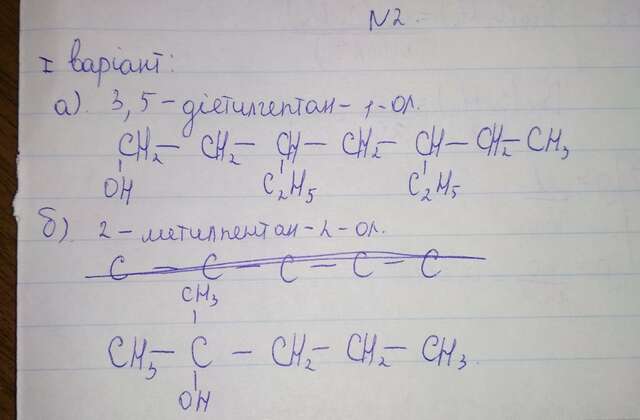 N2
I варіант:
а). 3,5-діетилгептан-1-ол.
CH₂ — CH₂ — CH — CH₂ — CH — CH₂ — CH₃
OH C₂H₅ C₂H₅
б). 2-метилпентан-2-ол.
C — C — C — C — C
CH₃
CH₃ — C — CH₂ — CH₂ — CH₃.
OH